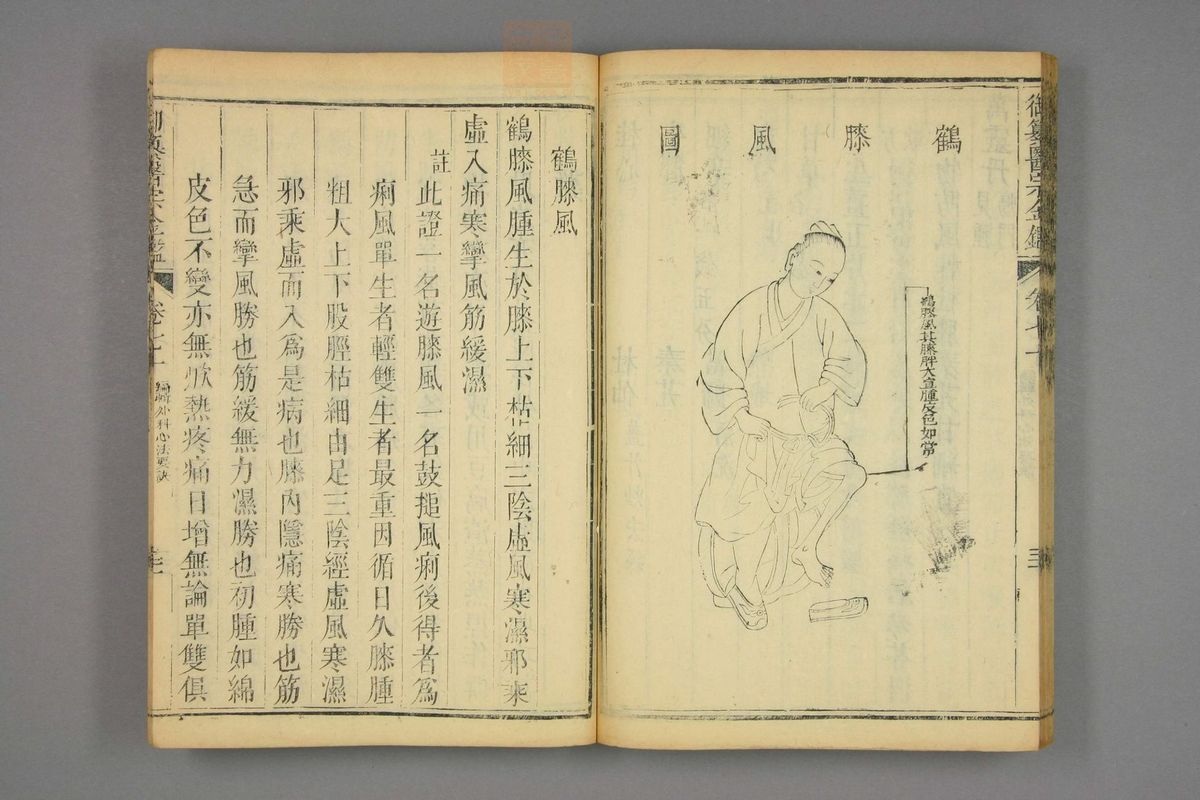 御纂醫宗金鑑
卷七十
三
鶴膝風圖
鶴膝風其膝胖大宣腫皮色如常
鶴膝風
鶴膝風腫生於膝上下枯細三陰虛風寒濕邪乘
虛入痛寒攣風筋緩濕
註此證一名遊膝風一名鼓搥風痢後得者為
痢風單生者輕雙生者最重因循日久膝腫
粗大上下股脛枯細由足三陰經虛風寒濕
邪乘虛而入為是病也膝內隱痛寒勝也筋
急而攣風勝也筋緩無力濕勝也初腫如綿
皮色不變亦無焮熱疼痛日增無論單雙俱
御纂醫宗金鑑
卷七十
編輯外科心法要訣